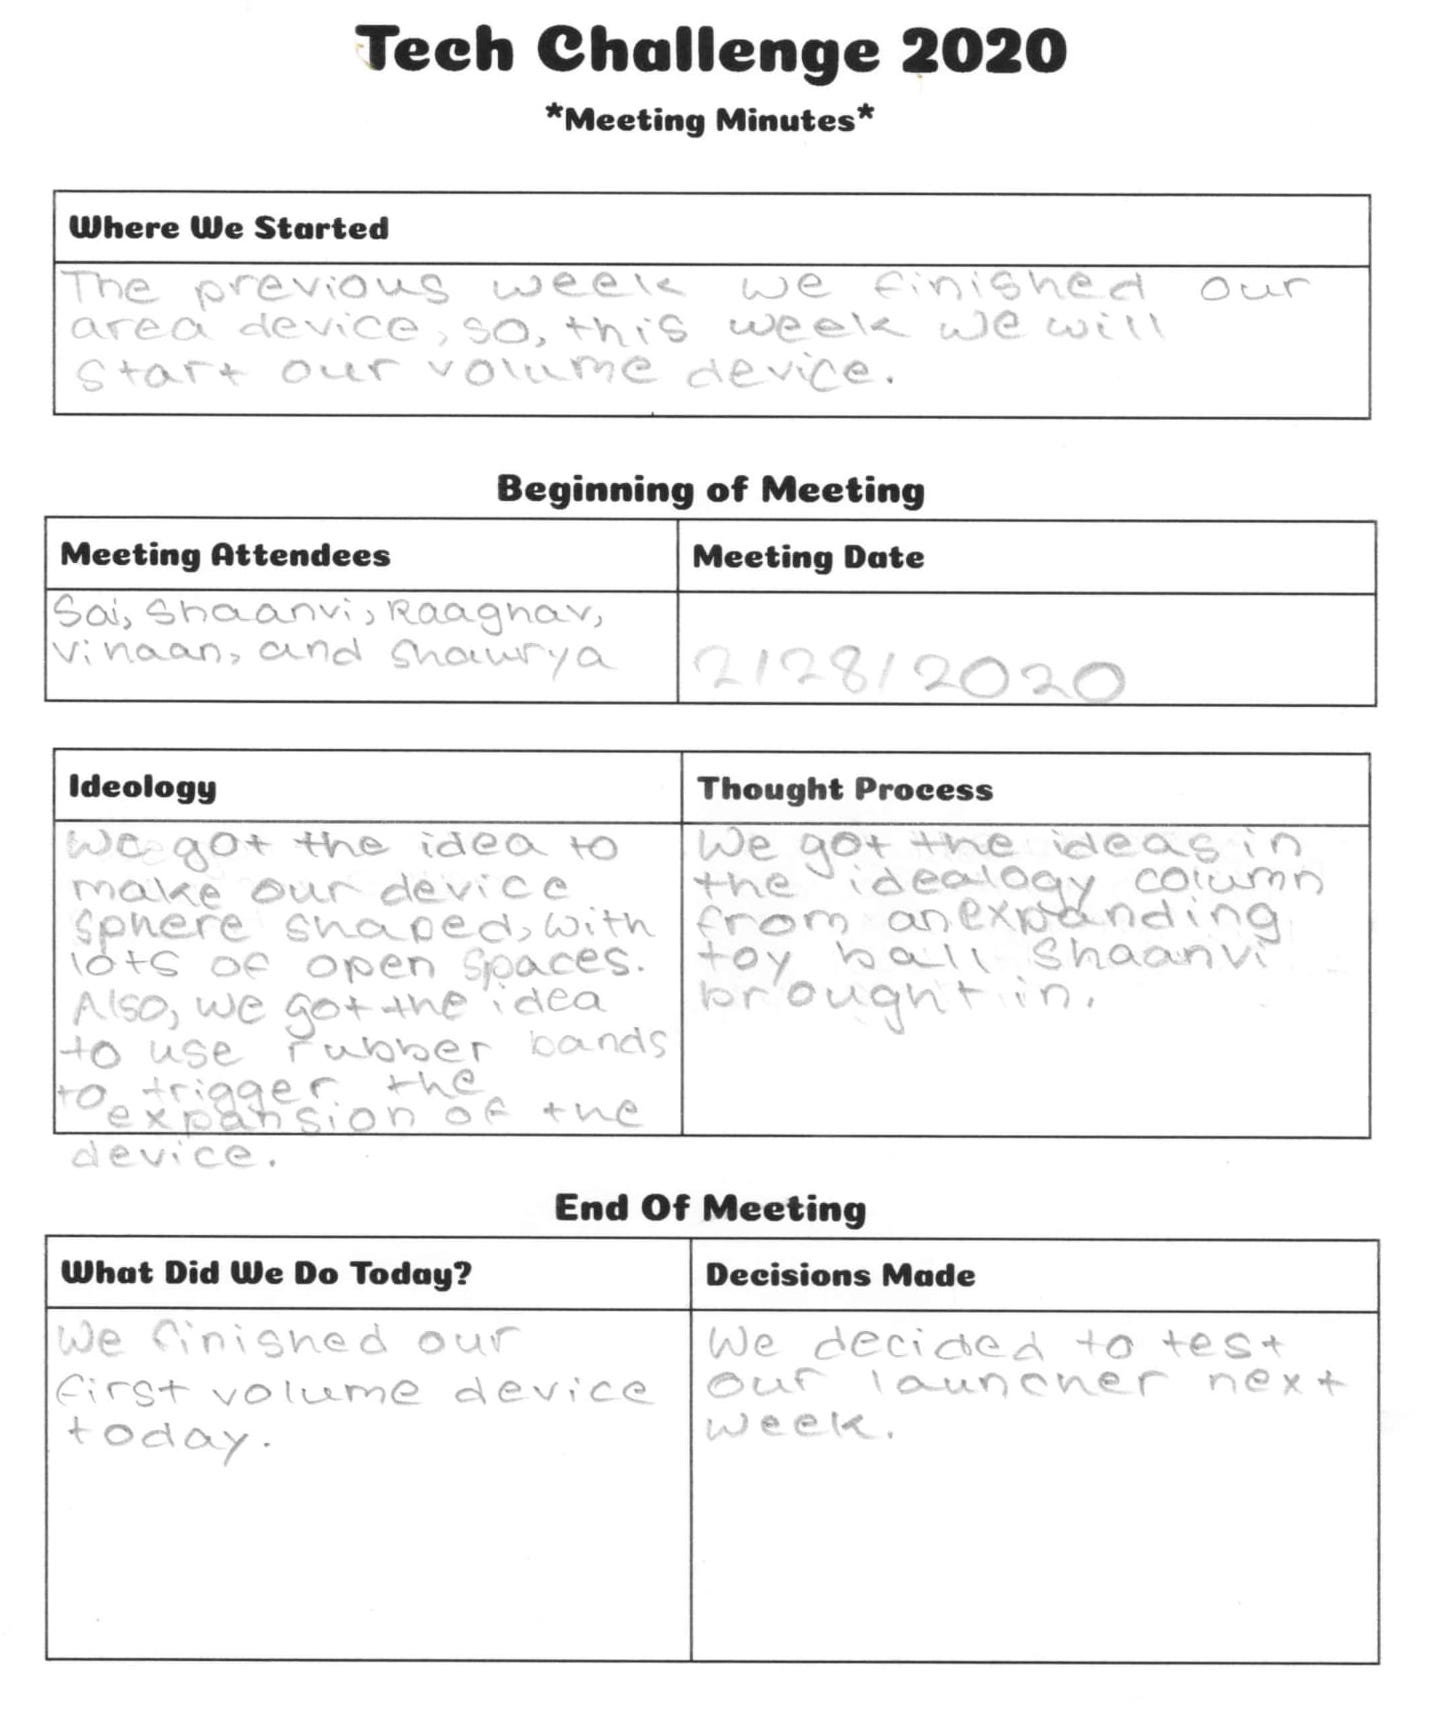 Tech Challenge 2020
*Meeting Minutes*
Where We Started
The previous week we finished our
area device, so, this week we will
start our volume device.
Beginning of Meeting
Meeting Attendees
Sai, Shaanvi, Raaghav,
Vinaan, and Shaurya
Meeting Date
2/28/2020
Ideology
We got the idea to
make our device
sphere shaped, with
lots of open spaces.
Also, we got the idea
to use rubber bands
to trigger the
expansion of the
device.
Thought Process
We got the ideas in
the idealogy column
from an expanding
toy ball Shaanvi
brought in.
End Of Meeting
What Did We Do Today?
We finished our
first volume device
today.
Decisions Made
We decided to test
our launcher next
week.